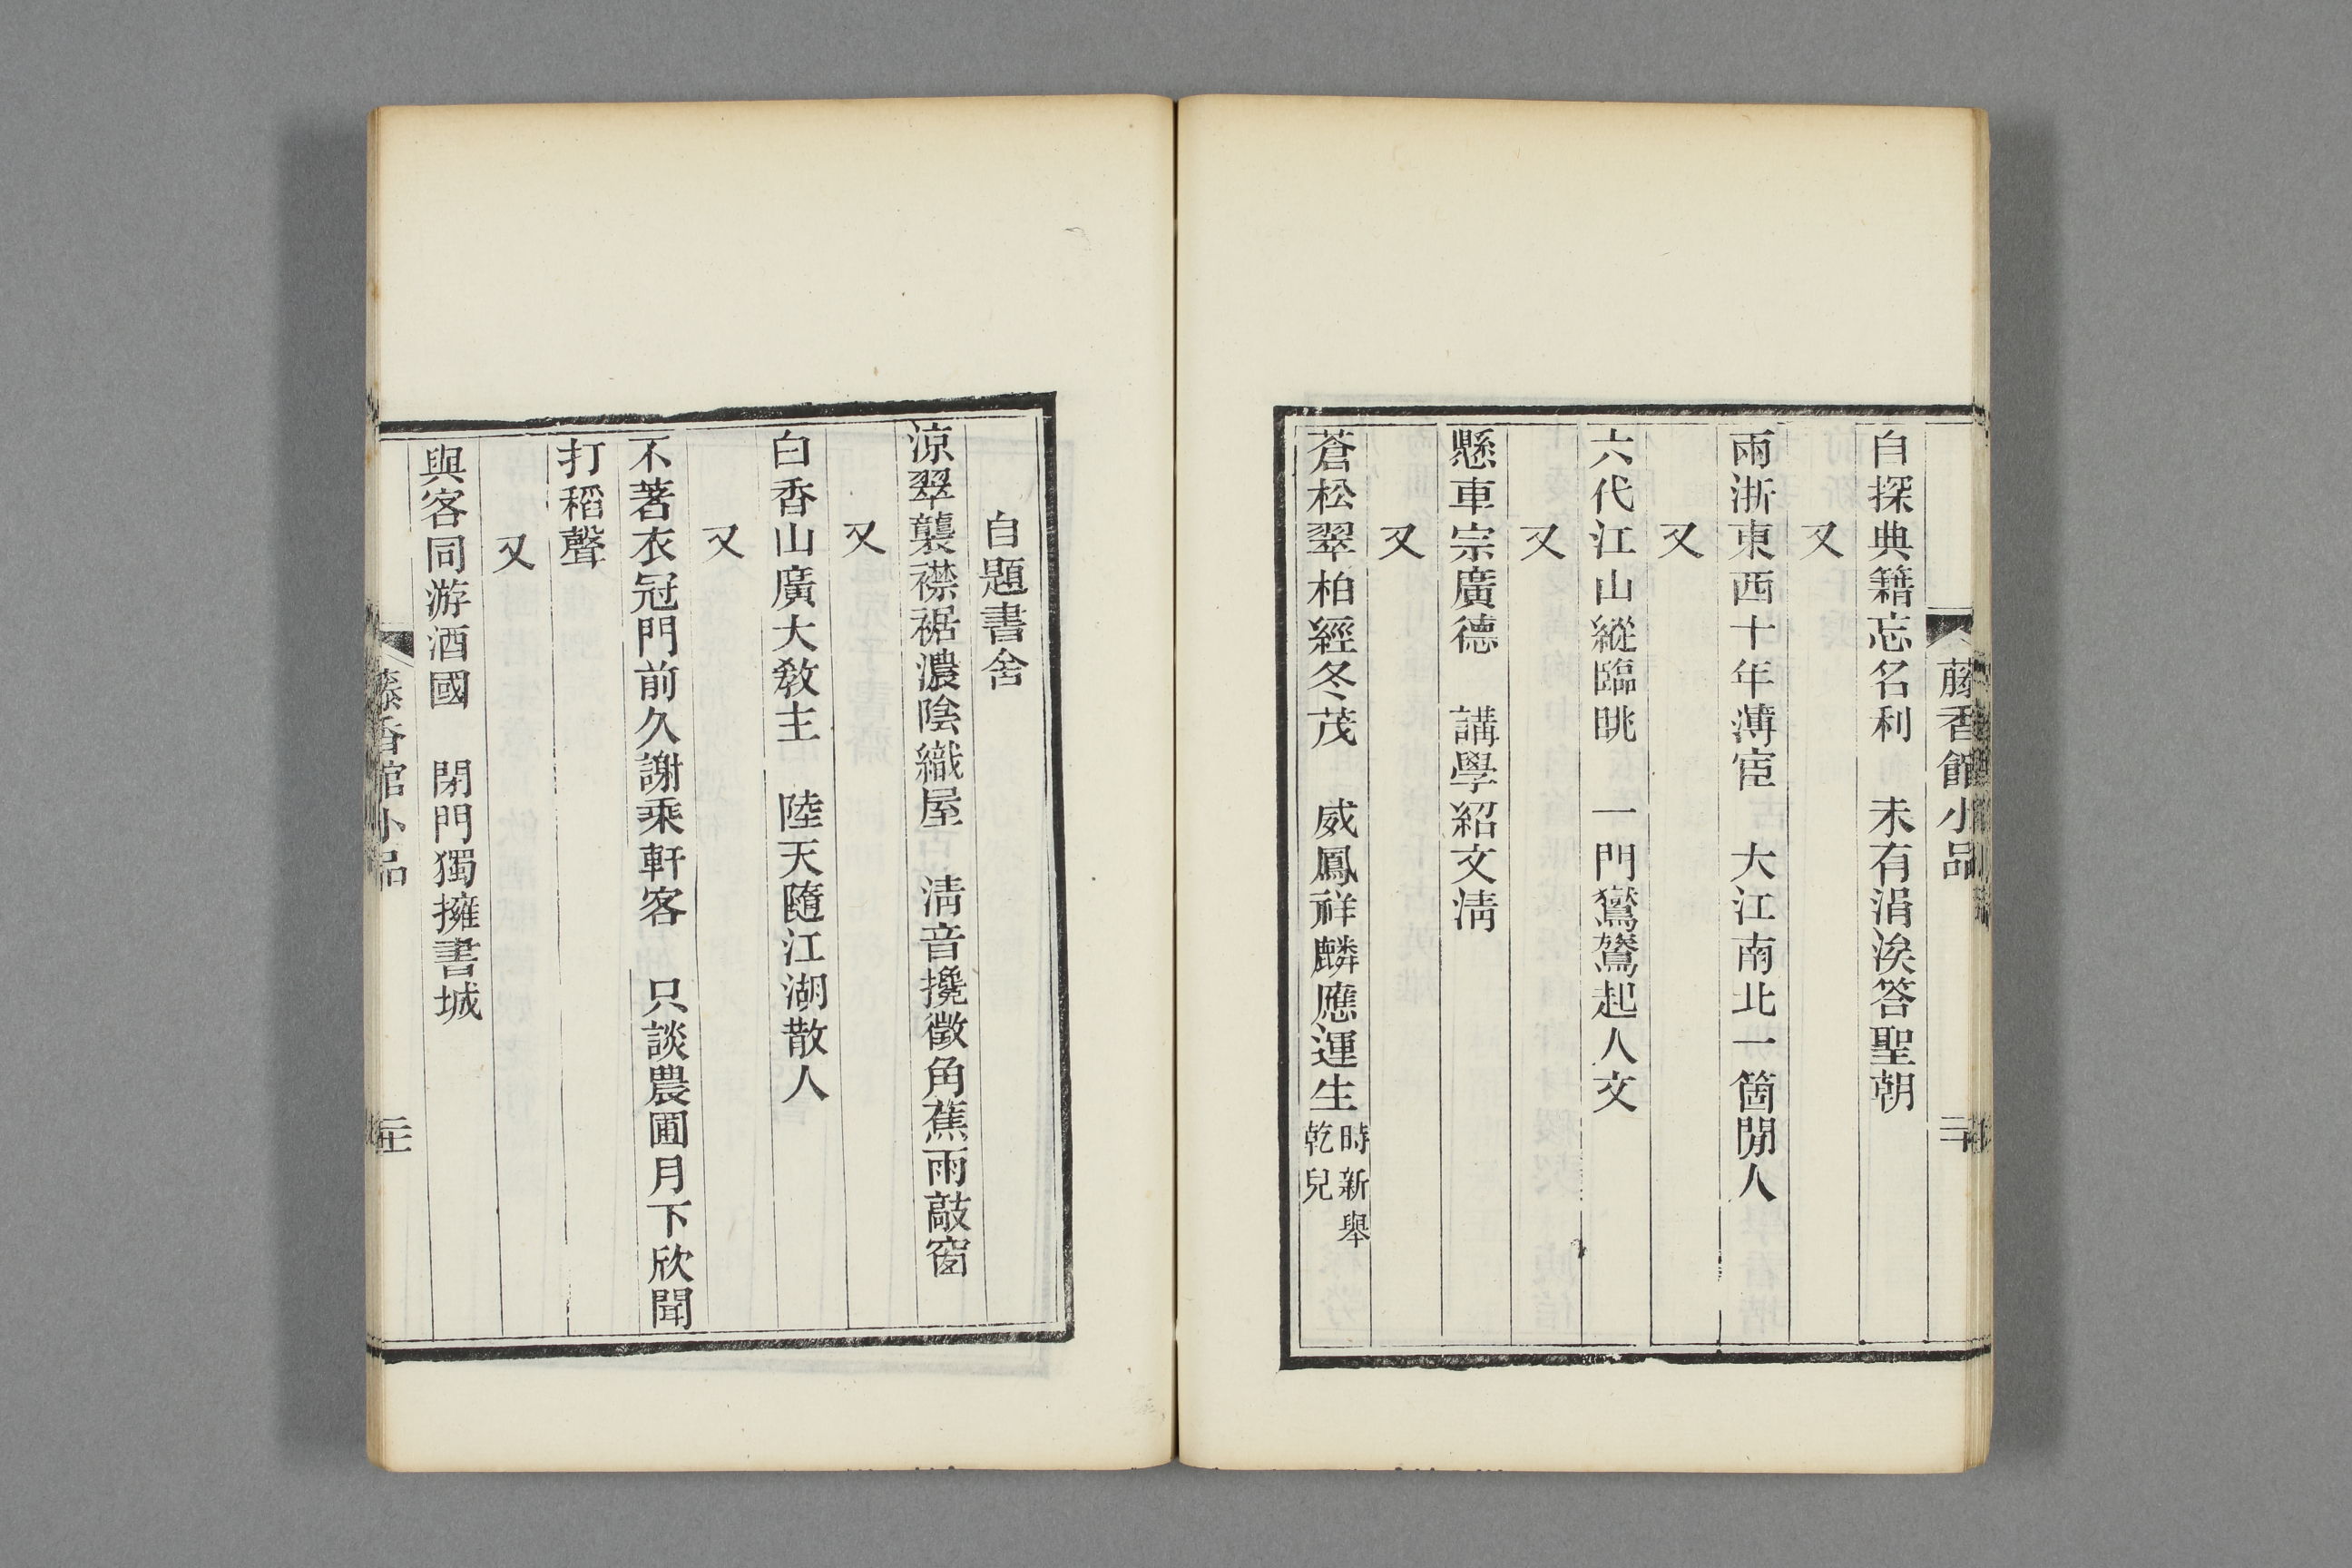 藤香館小品 二十
自探典籍忘名利 未有涓涘答聖朝
又
兩浙東西十年薄宦 大江南北一箇閒人
又
六代江山縱臨眺 一門鸑鷟起人文
又
懸車宗廣德 講學紹文清
又
蒼松翠柏經冬茂 威鳳祥麟應運生時新舉
乾兒
自題書舍
涼翠襲襟裾濃陰織屋 清音攙徵角蕉雨敲窗
又
白香山廣大敎主 陸天隨江湖散人
又
不著衣冠門前久謝乘軒客 只談農圃月下欣聞
打稻聲
又
與客同游酒國 閉門獨擁書城
藤香館小品